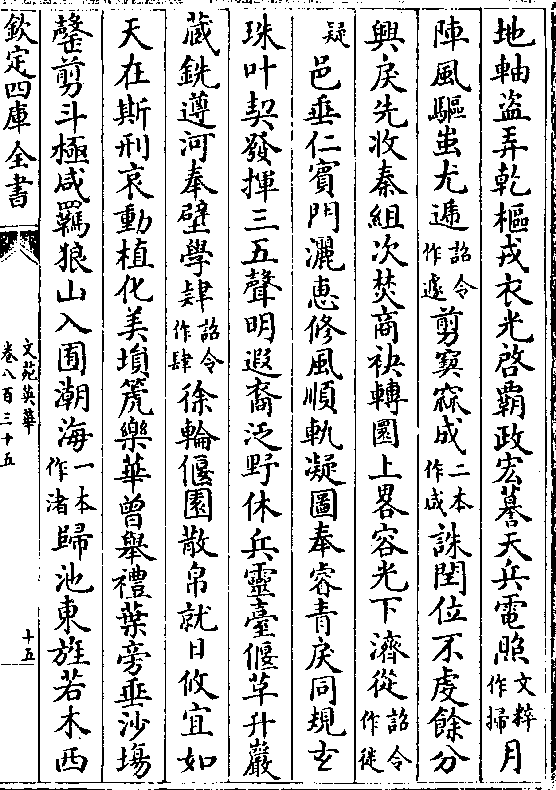 地軸盜弄乾樞戎衣光啓霸政宏謩天兵電照文粹作掃月
陣風驅蚩尤遞詔令作遽剪窫窳成二本作咸誅閏位不虔餘分
興戾先收秦組次焚商袂轉圜上畧容光下濟從詔令作徙
疑邑垂仁賓門灑恵修風順軌凝圖奉睿青戾同規𤣥
珠叶契發揮三五聲明遐裔泛野休兵靈臺偃草升巖
蔵銑遵河奉壁學肆詔令作肆徐輪偃園散帛就日攸宜如
天在斯刑哀動植化美墳箎樂華曾舉禮葉旁垂沙塲
罄剪斗極咸羈狼山入囿潮海一本作渚歸池東旌若木西
欽定四庫全書
文苑英華
卷八百三十五
十五